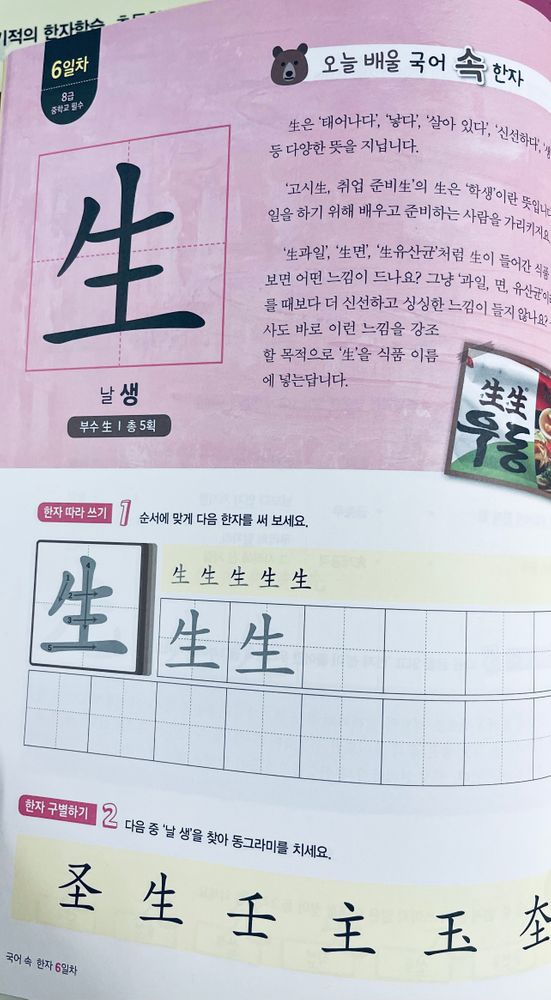 기적의 한자학습
6일차
8급
중학교 필수
生
날 생
부수 生 | 총 5획
오늘 배울 국어 속 한자
生은 '태어나다', '낳다', '살아 있다', '신선하다',
등 다양한 뜻을 지닙니다.
'고시生, 취업 준비生'의 生은 '학생'이란 뜻입니다
일을 하기 위해 배우고 준비하는 사람을 가리키지요
'生과일', '生면', '生유산균'처럼 生이 들어간 식품
보면 어떤 느낌이 드나요? 그냥 '과일, 면, 유산균'
를 때보다 더 신선하고 싱싱한 느낌이 들지 않나요?
사도 바로 이런 느낌을 강조
할 목적으로 '生'을 식품 이름
에 넣는답니다.
生生
우동
한자 따라 쓰기 1 순서에 맞게 다음 한자를 써 보세요.
生 生 生 生 生
生 生 生
한자 구별하기 2 다음 중 '날 생'을 찾아 동그라미를 치세요.
圣 生 壬 主 玉
국어 속 한자 6일차